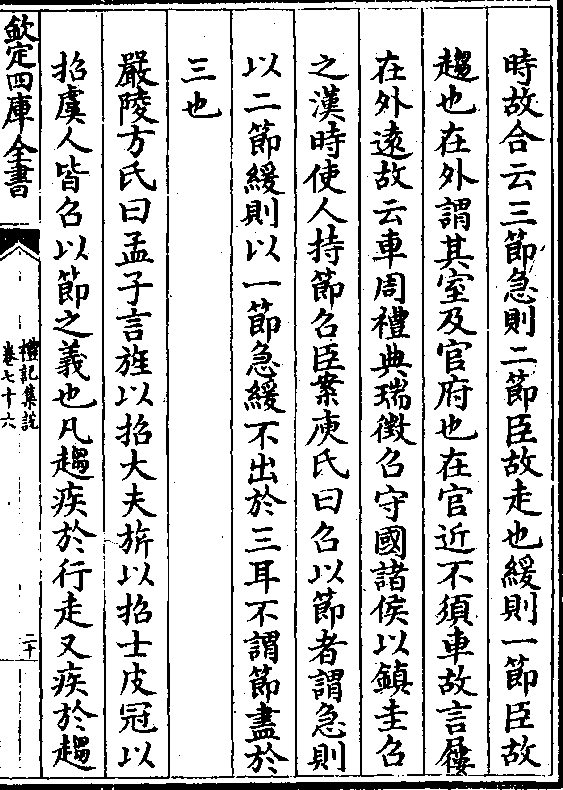 時故合云三節急則二節臣故走也緩則一節臣故
趨也在外謂其室及官府也在官近不須車故言屨
在外逺故云車周禮典瑞徵召守國諸侯以鎮圭召
之漢時使人持節召臣案庾氏曰召以節者謂急則
以二節緩則以一節急緩不出於三耳不謂節盡於
三也
嚴陵方氏曰孟子言旌以招大夫旂以招士皮冠以
招虞人皆召以節之義也凡趨疾於行走又疾於趨
欽定四庫全書
禮記集說
卷七十六
二十